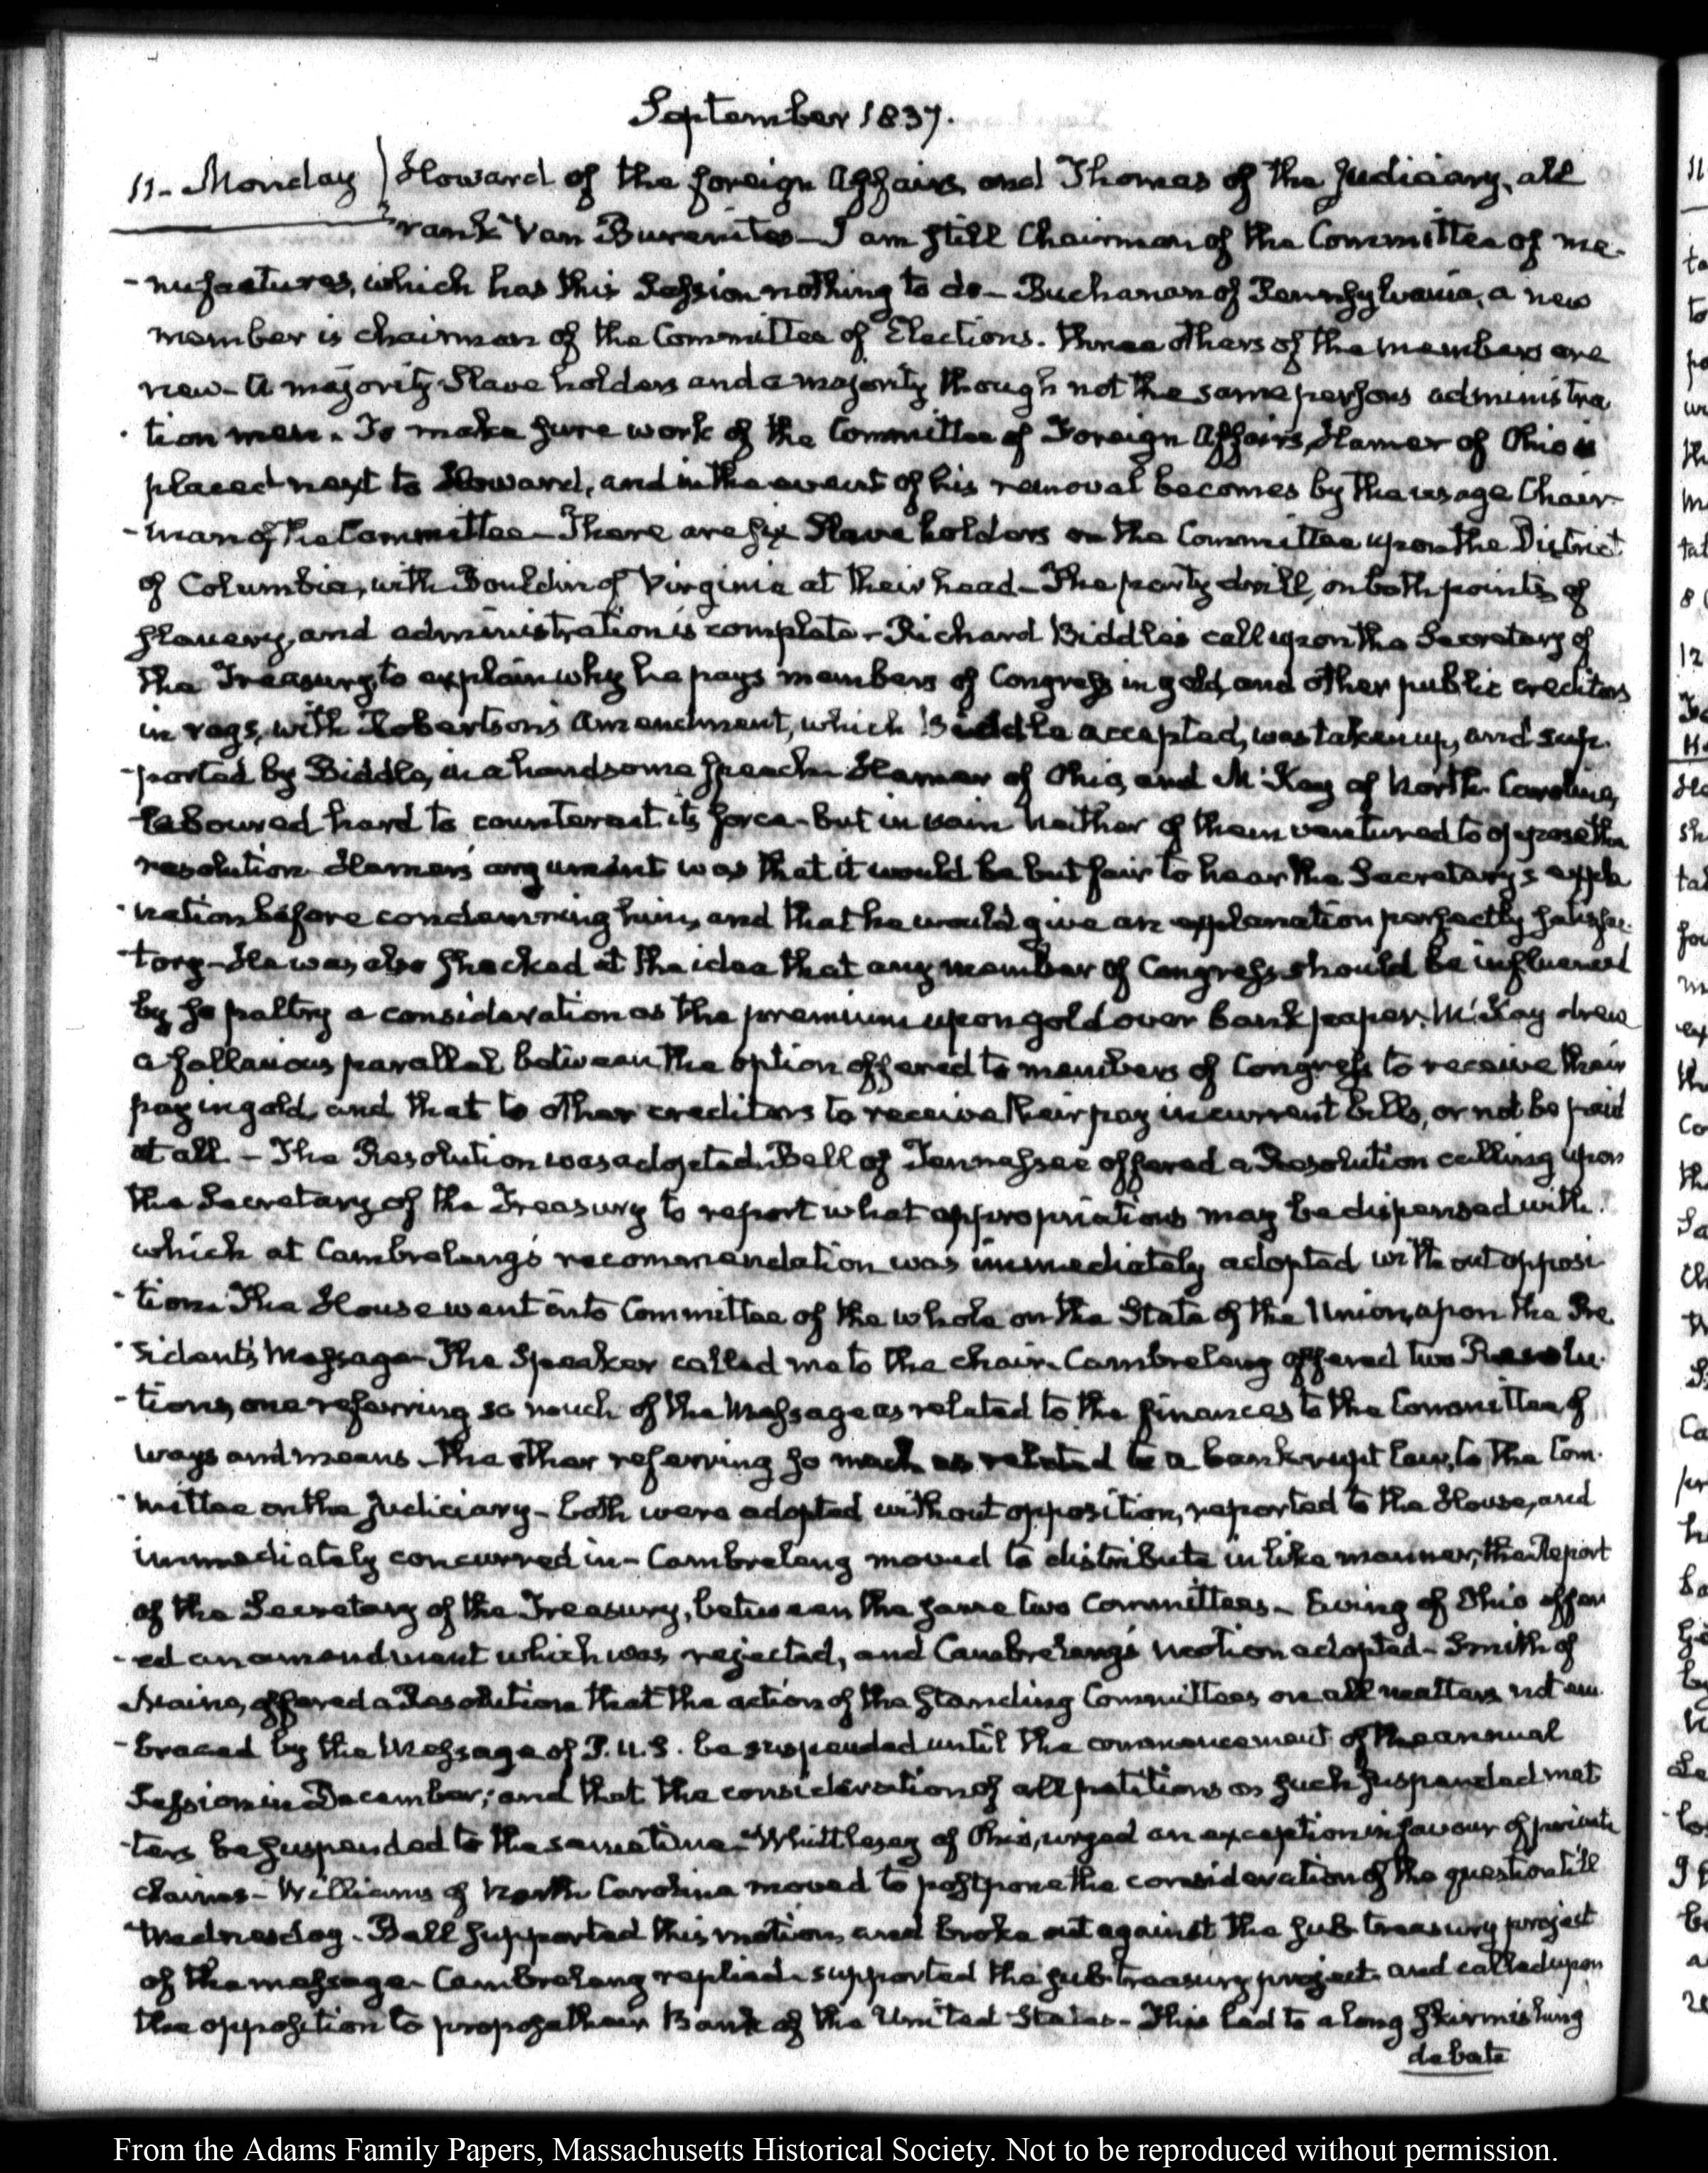 September 1837.
11. Monday) Howard of the foreign Affairs, and Thomas of the Judiciary, all
rank Van Burenites — I am still Chairman of the Committee of ma-
-nufactures, which has this Session nothing to do — Buchanan of Pennsylvania, a new
member is chairman of the Committee of Elections. three others of the members are
new — A majority Slave holders and a majority though not the same persons administra
-tion men. To make sure work of the Committee of Foreign Affairs, Hamer of Ohio is
placed next to Howard, and in the event of his removal becomes by the usage Chair-
-man of the Committee — There are six Slave holders on the Committee upon the District
of Columbia, with Bouldin of Virginia at their head — The party drill, on both points of
slavery, and administration is complete — Richard Biddle's call upon the Secretary of
the Treasury, to explain why he pays members of Congress in gold, and other public creditors
in rags, with Robertson's amendment, which Biddle accepted, was taken up, and sup-
-ported by Biddle, in a handsome speech. Hamer of Ohio, and McKay of North Carolina,
laboured hard to counteract its force — but in vain. Neither of them ventured to oppose the
resolution. Hamer's argument was that it would be but fair to hear the Secretary's expla
-nation before condemning him, and that he would give an explanation perfectly satisfac-
-tory — He was also shocked at the idea that any member of Congress should be influenced
by so paltry a consideration as the premium upon gold over bank paper. McKay drew
a fallacious parallel between the option offered to members of Congress to receive their
pay in gold, and that to other creditors to receive their pay in current bills, or not be paid
at all — The Resolution was adopted. Bell of Tennessee offered a Resolution calling upon
the Secretary of the Treasury to report what appropriations may be dispensed with.
which at Cambreleng's recommendation was immediately adopted without opposi-
-tion. The House went into Committee of the whole on the State of the Union, upon the Pre
-sident's Message — The Speaker called me to the chair. Cambreleng offered two Resolu-
-tions, one referring so much of the Message as related to the finances to the Committee of
ways and means — the other referring so much as related to a bankrupt law, to the Com-
-mittee on the Judiciary — both were adopted without opposition, reported to the House, and
immediately concurred in — Cambreleng moved to distribute in like manner, the Report
of the Secretary of the Treasury, between the same two Committees — Ewing of Ohio offer
-ed an amendment which was rejected, and Cambreleng's motion adopted — Smith of
Maine, offered a Resolution that the action of the standing Committees on all matters not em-
-braced by the Message of P.U.S. be suspended until the commencement of the annual
Session in December; and that the consideration of all petitions on such suspended mat
-ters be suspended to the same time — Whittlesey of Ohio, urged an exception in favour of private
claims — Williams of North Carolina moved to postpone the consideration of the question till
Wednesday. Bell supported this motion, and broke out against the sub treasury project
of the message. Cambreleng replied — supported the sub treasury project and called upon
the opposition to propose their Bank of the United States — This led to a long skirmishing
debate
From the Adams Family Papers, Massachusetts Historical Society. Not to be reproduced without permission.